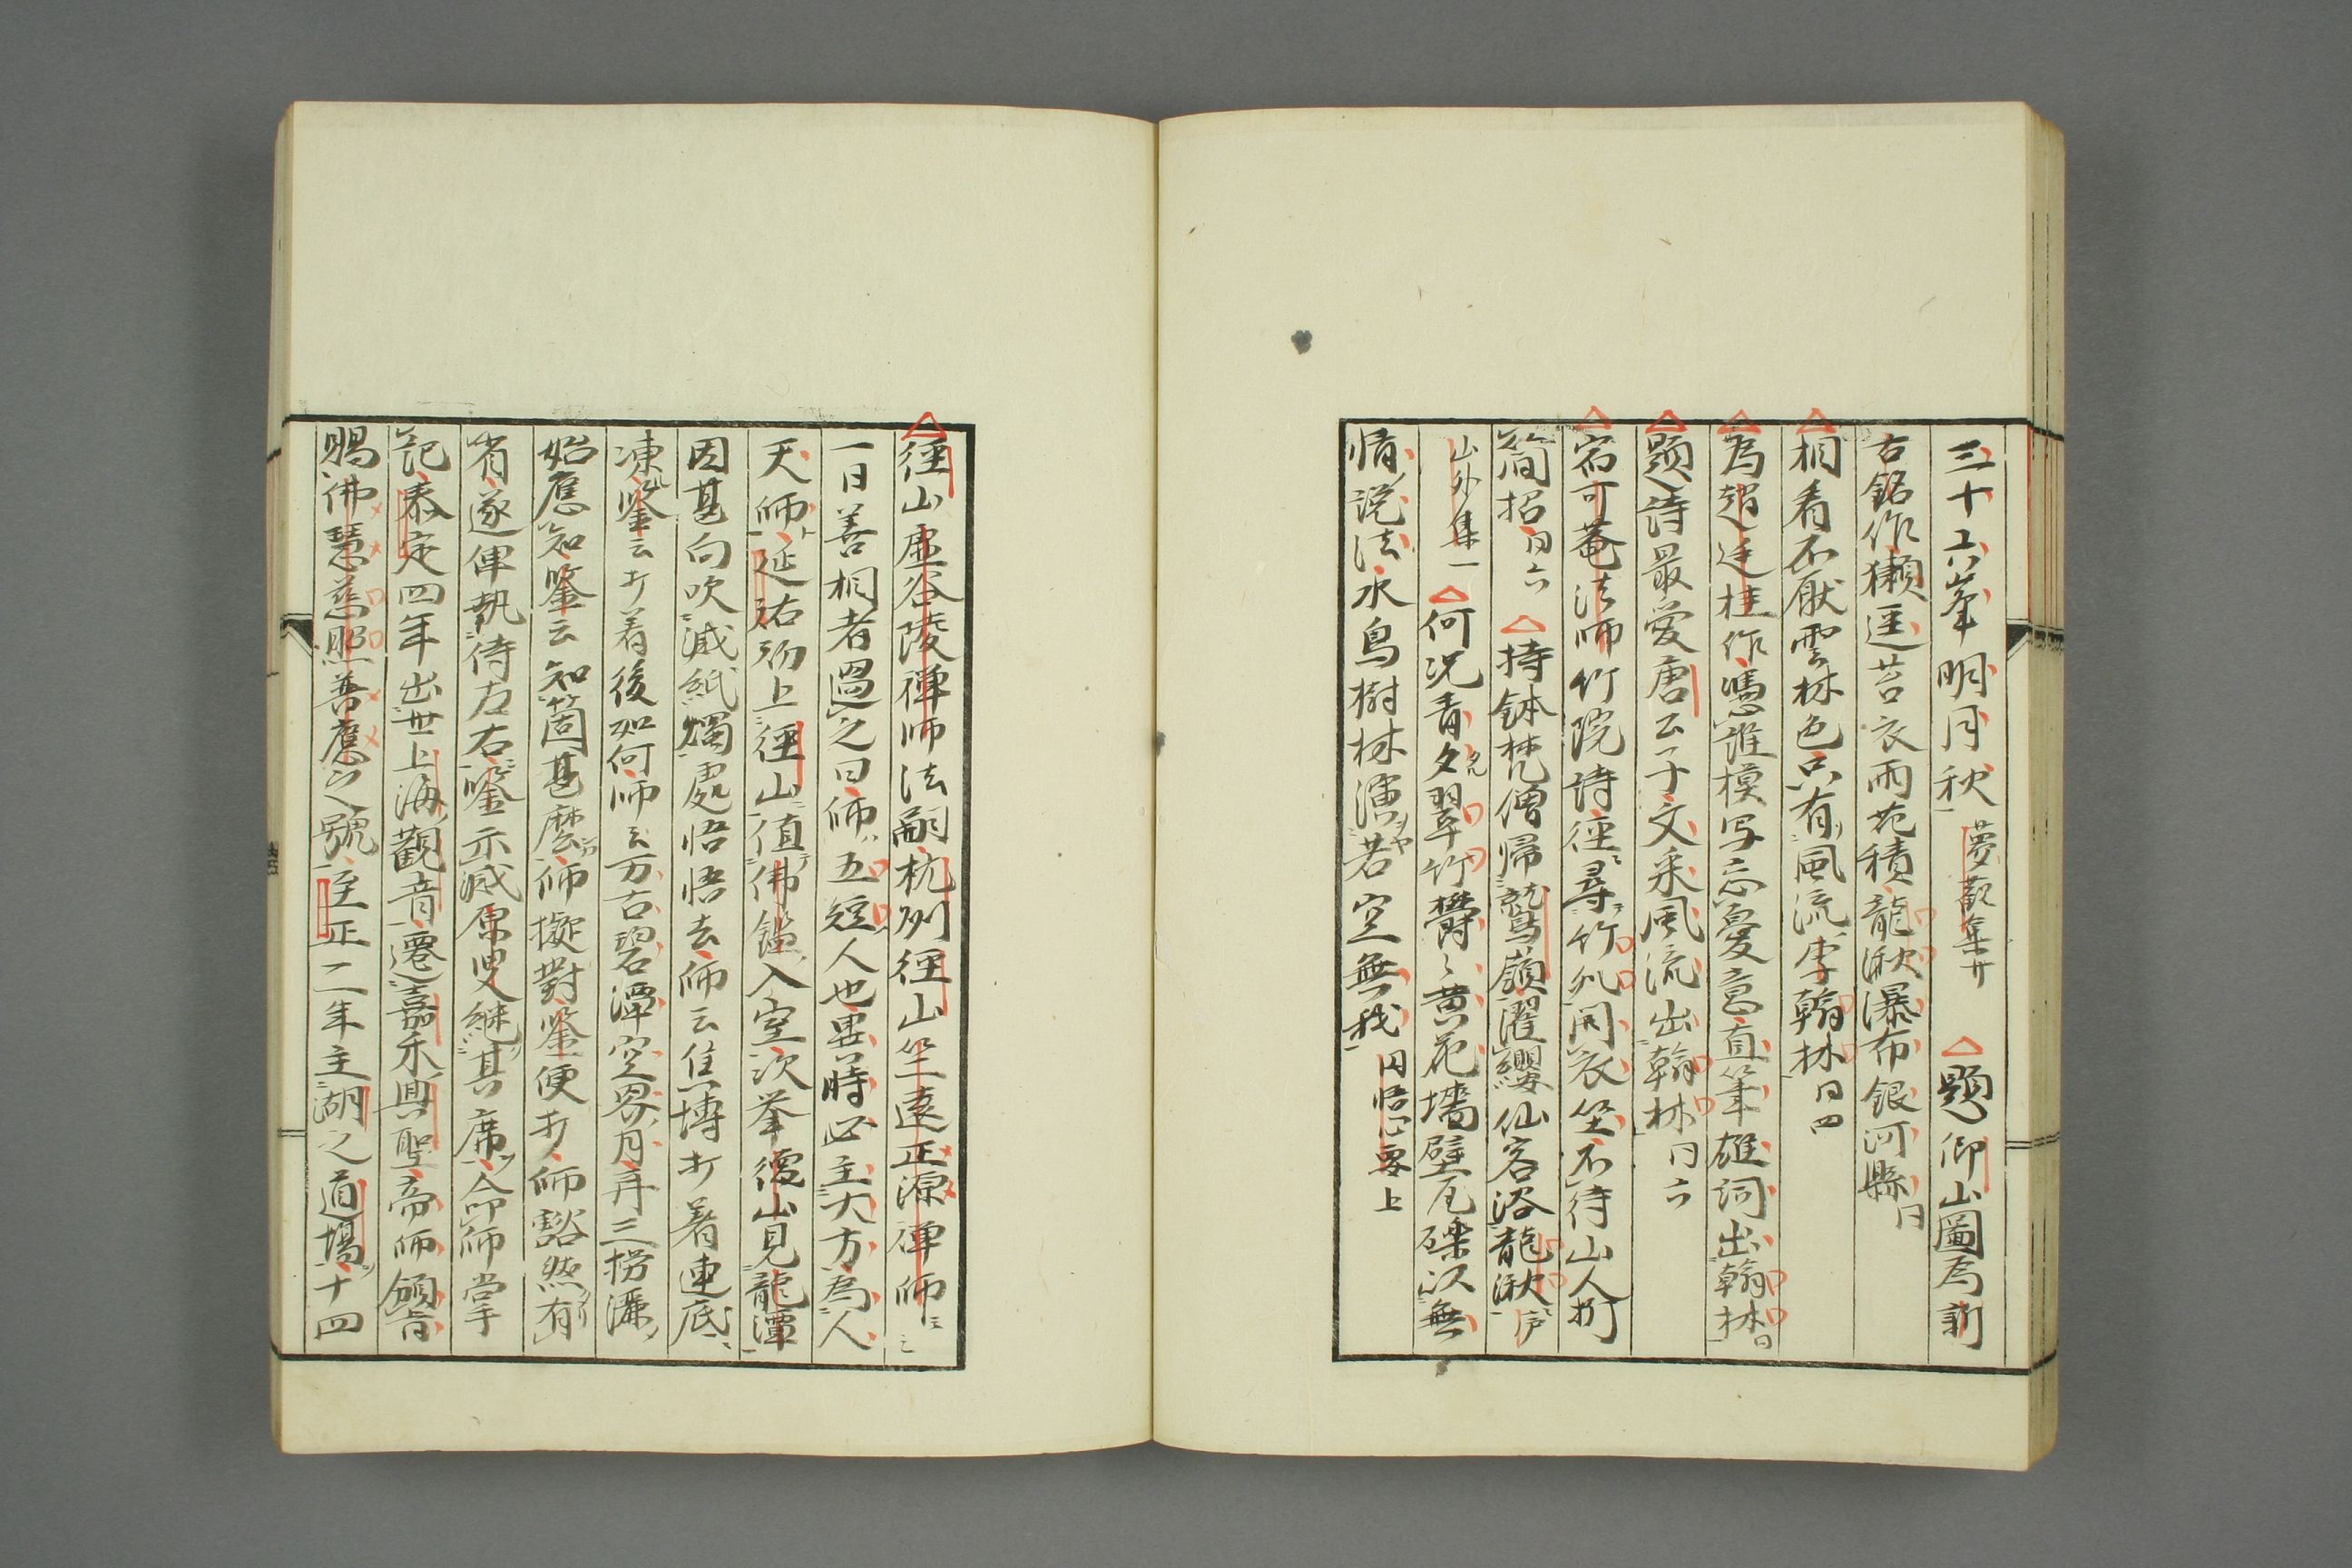 三十六峯明月秋 夢觀集廿 題仰山圖為訢
古銘作獺逕苔衣雨花積龍湫瀑布銀河縣同
相看不厭雲林色只有風流李翰林同四
為趙廷桂作憑誰模写忘憂意直筆雄詞出翰林同
題詩最愛唐公子文采風流出翰林同六
宿可菴法師竹院詩徑尋竹外開衣坐不待山人折
簡招同六 持鉢梵僧帰鷲嶺濯纓仙客浴龍湫
山外集一 何況青々翠竹欝々黄花墻壁瓦礫以無
情説法水鳥樹林演若空無我 円悟心要上
徑山虚谷陵禅師法嗣杭州徑山竺遠正源禅師
一日善相者過之曰師五短人也異時必主大方為人
天師延祐初上徑山值佛鑑入室次挙德山見龍潭
因甚向吹滅紙燭處悟悟去師云焦塼打着連底
凍鑒云打着後如何師云万古碧潭空界月再三撈漉
始應知鑒云知箇甚麼師擬對鑒便打師豁然有
省遂俾執侍左右鑒示滅原叟継其席命師掌
記泰定四年出世上海觀音遷嘉禾興聖帝師頒旨
賜佛慧慈照普應之號至正二年主湖之道場十四